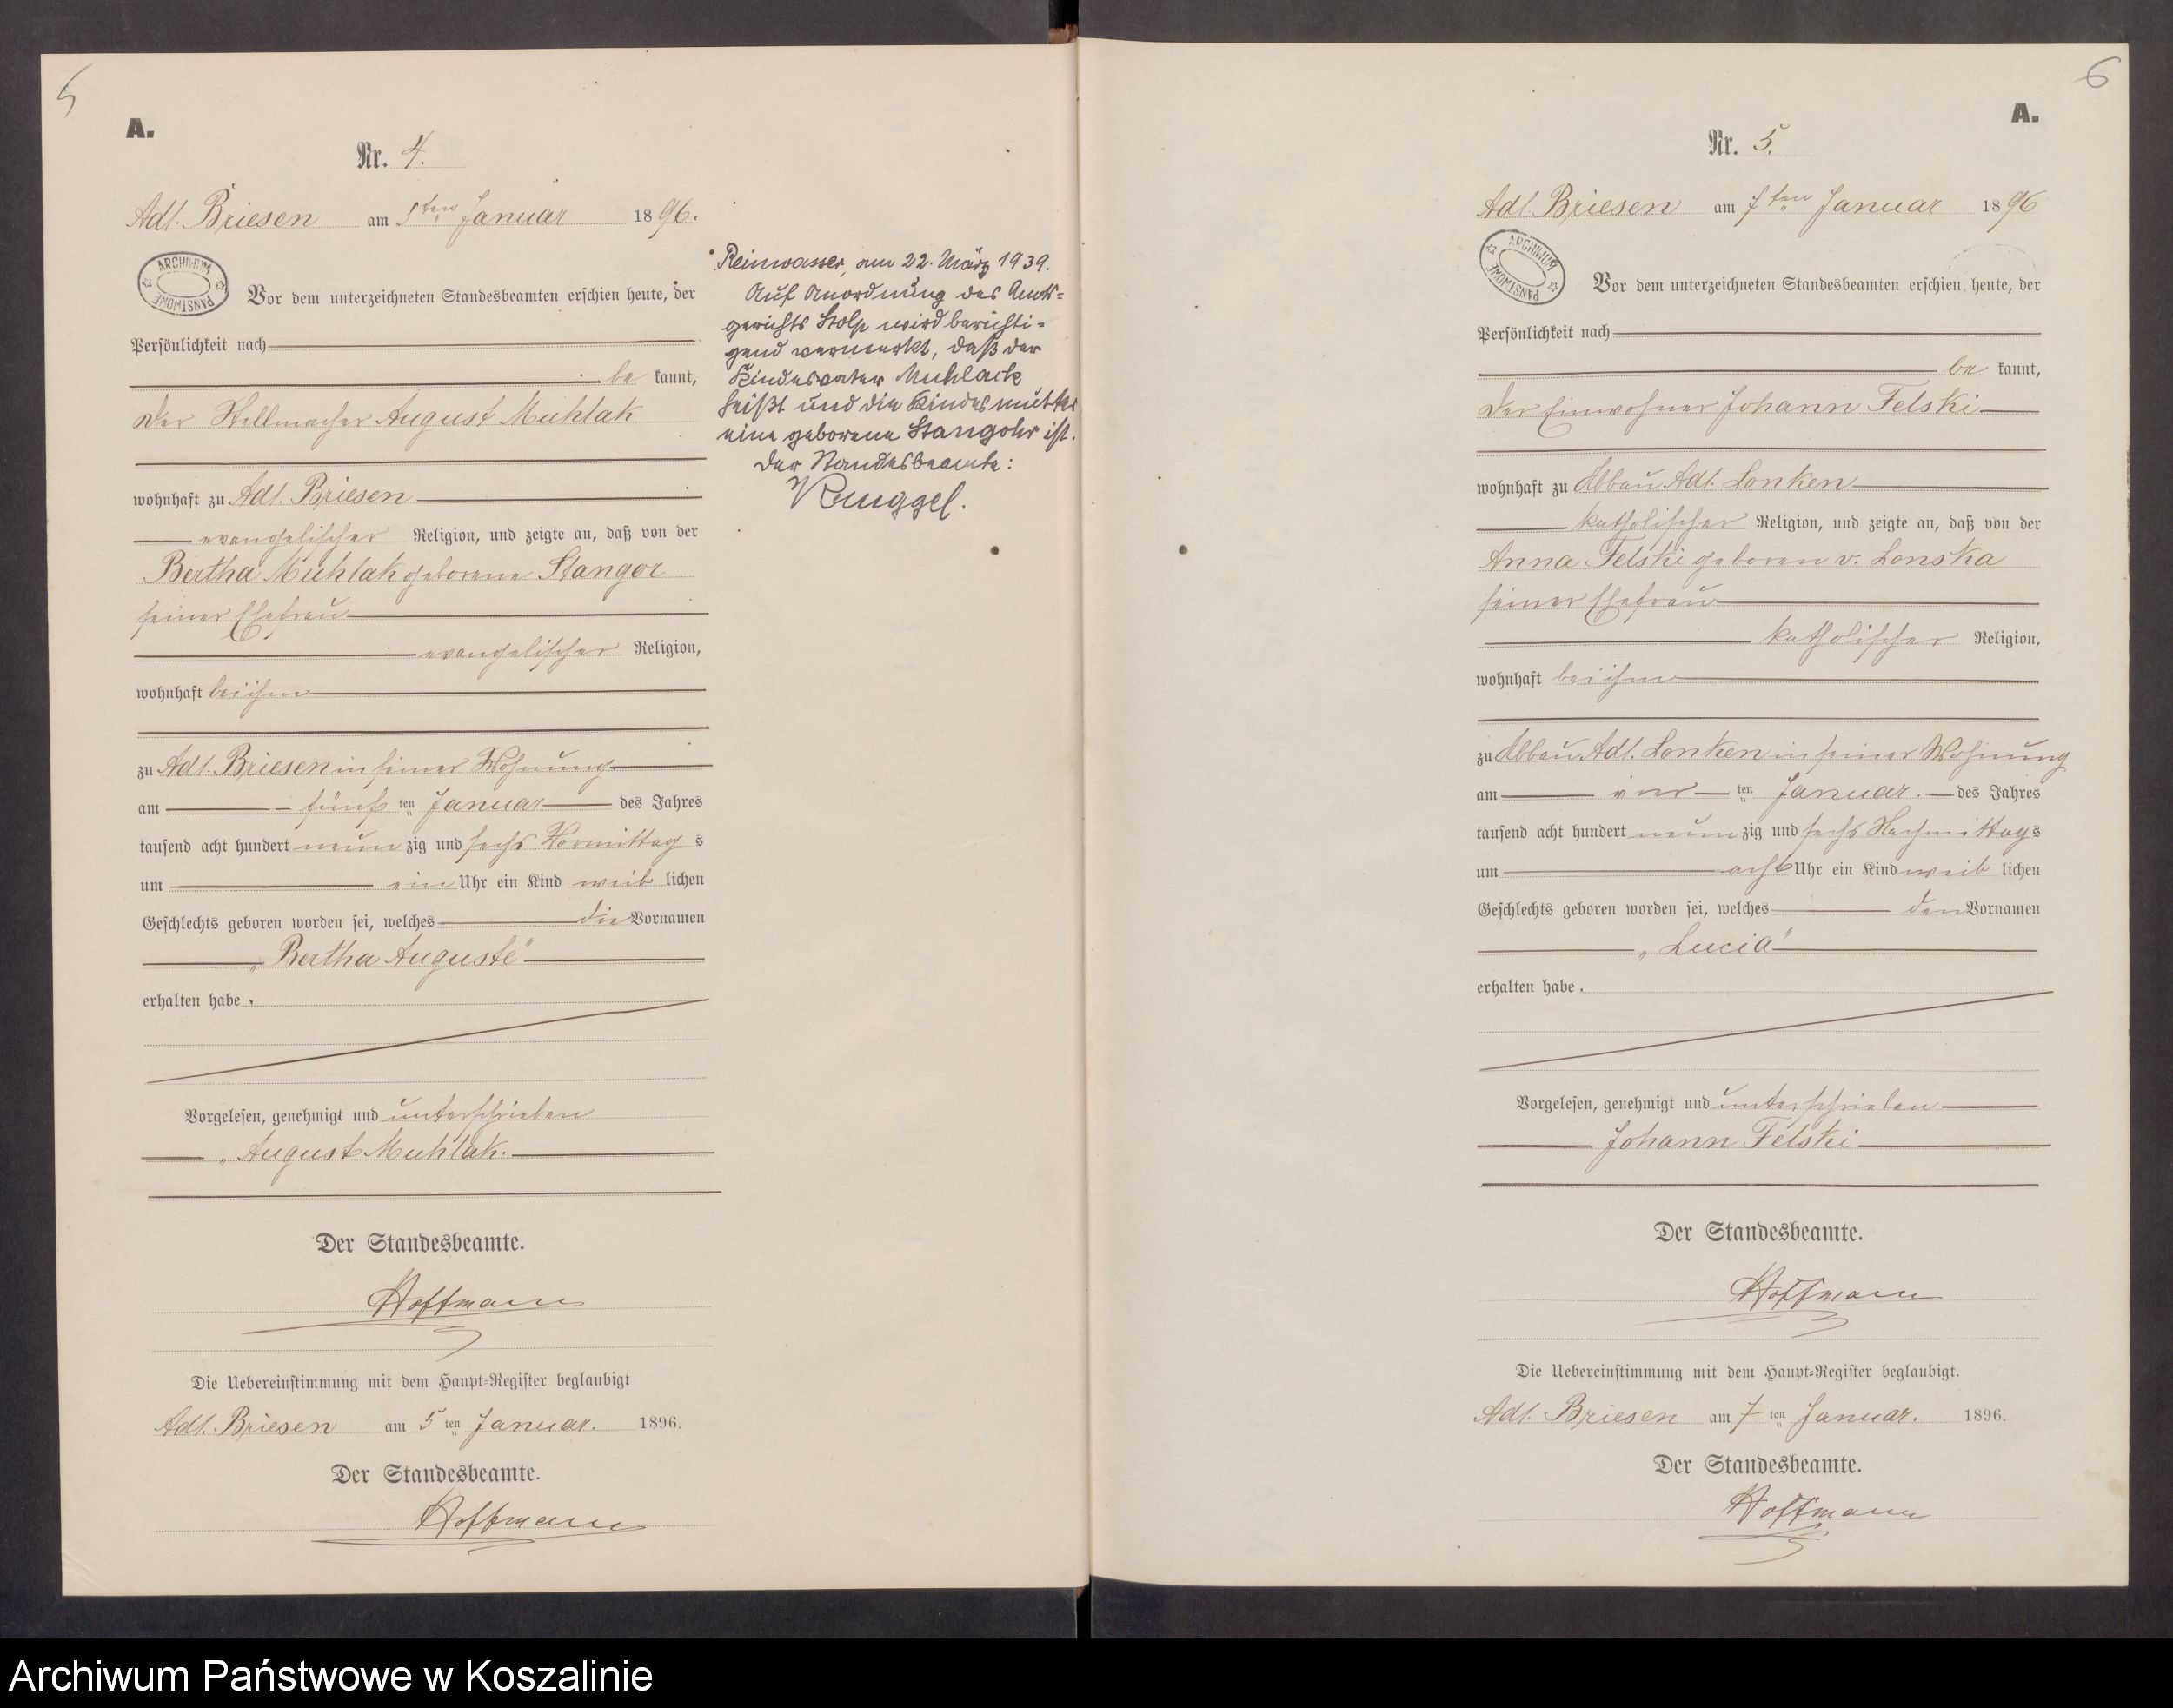 5
A.
Nr. 4.
Adl. Briesen am 5ten Januar 1896.
ARCHIWUM PAŃSTWOWE
Vor dem unterzeichneten Standesbeamten erschien heute, der
Persönlichkeit nach
be kannt,
der Stellmacher August Muhlak
wohnhaft zu Adl. Briesen
evangelischer Religion, und zeigte an, daß von der
Bertha Muhlak geborene Stangor
seiner Ehefrau
evangelischer Religion,
wohnhaft bei ihm
zu Adl. Briesen in seiner Wohnung
am fünf ten Januar des Jahres
tausend acht hundert neun zig und sechs Vormittag s
um ein Uhr ein Kind weib lichen
Geschlechts geboren worden sei, welches die Vornamen
„Bertha Auguste"
erhalten habe.
Vorgelesen, genehmigt und unterschrieben
„August Muhlak.
Der Standesbeamte.
Hoffmann
Die Uebereinstimmung mit dem Haupt-Register beglaubigt
Adl. Briesen am 5 ten Januar. 1896.
Der Standesbeamte.
Hoffmann
Reinwasser, am 22. März 1939.
Auf Anordnung des Amts-
gerichts Stolp wird berichti-
gend vermerkt, daß der
Kindesvater Muhlack
heißt und die Kindesmutter
eine geborene Stangohr ist.
Der Standesbeamte:
6
A.
Nr. 5.
Adl. Briesen am 7ten Januar 1896
ARCHIWUM PAŃSTWOWE
Vor dem unterzeichneten Standesbeamten erschien heute, der
Persönlichkeit nach
be kannt,
der Einwohner Johann Felski
wohnhaft zu Abbau Adl. Lonken
katholischer Religion, und zeigte an, daß von der
Anna Felski geboren v. Lonska
seiner Ehefrau
katholischer Religion,
wohnhaft bei ihm
zu Abbau Adl. Lonken in seiner Wohnung
am vier ten Januar. des Jahres
tausend acht hundert neun zig und sechs Nachmittag s
um acht Uhr ein Kind weib lichen
Geschlechts geboren worden sei, welches den Vornamen
„Lucia"
erhalten habe.
Vorgelesen, genehmigt und unterschrieben
Johann Felski
Der Standesbeamte.
Hoffmann
Die Uebereinstimmung mit dem Haupt-Register beglaubigt.
Adl. Briesen am 7 ten Januar. 1896.
Der Standesbeamte.
Hoffmann
Archiwum Państwowe w Koszalinie